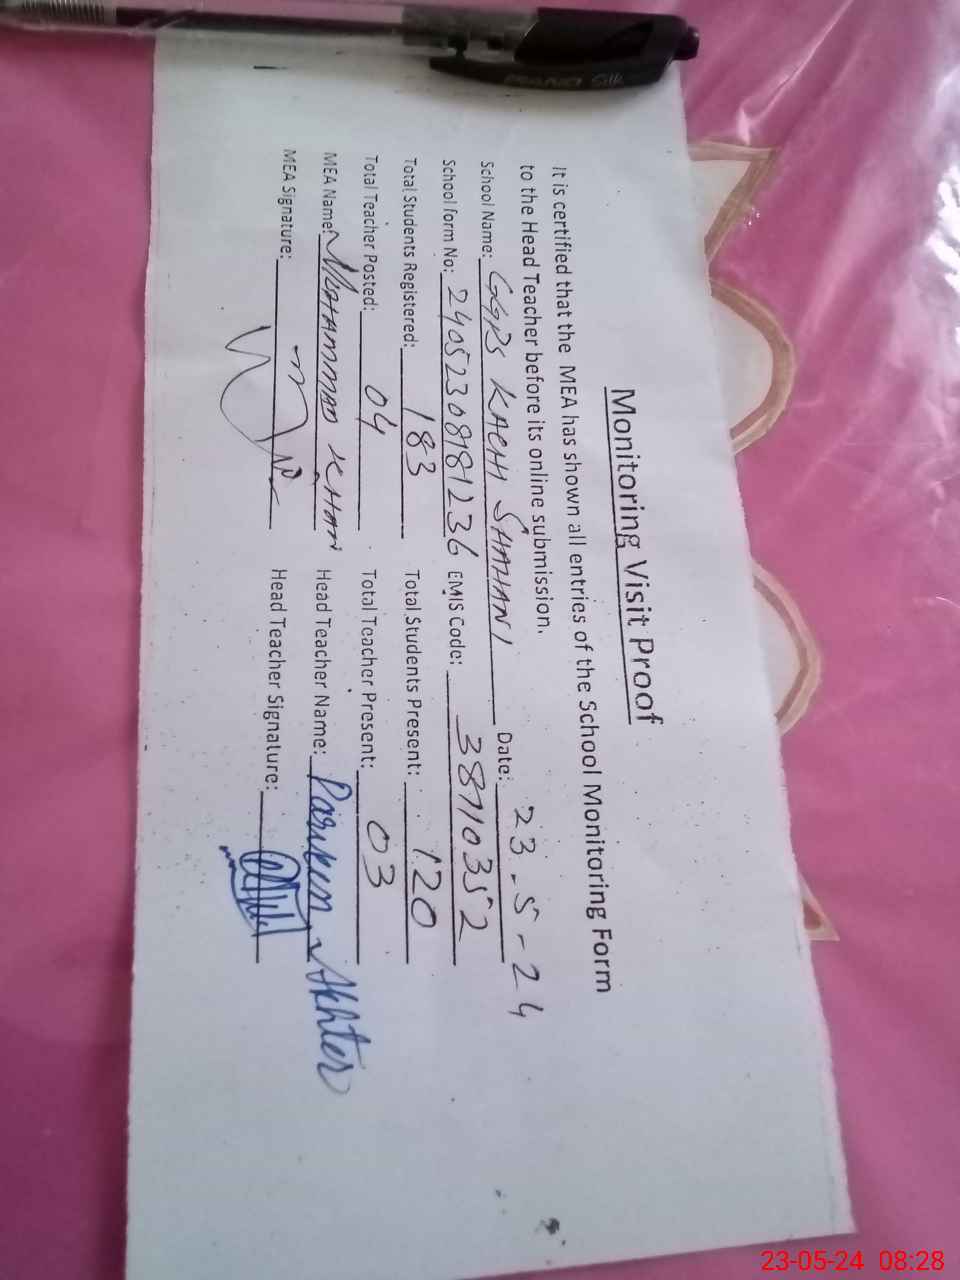 Monitoring Visit Proof
It is certified that the MEA has shown all entries of the School Monitoring Form
to the Head Teacher before its online submission.
School Name: GGPS KACHI SHAHANI Date: 23-5-24
School form No: 24052308181236 EMIS Code: 38710352
Total Students Registered: 183 Total Students Present: 120
Total Teacher Posted: 04 Total Teacher Present: 03
MEA Name: MOHAMMAD KHAN Head Teacher Name: Parveen Akhter
MEA Signature: Head Teacher Signature:
23-05-24 08:28